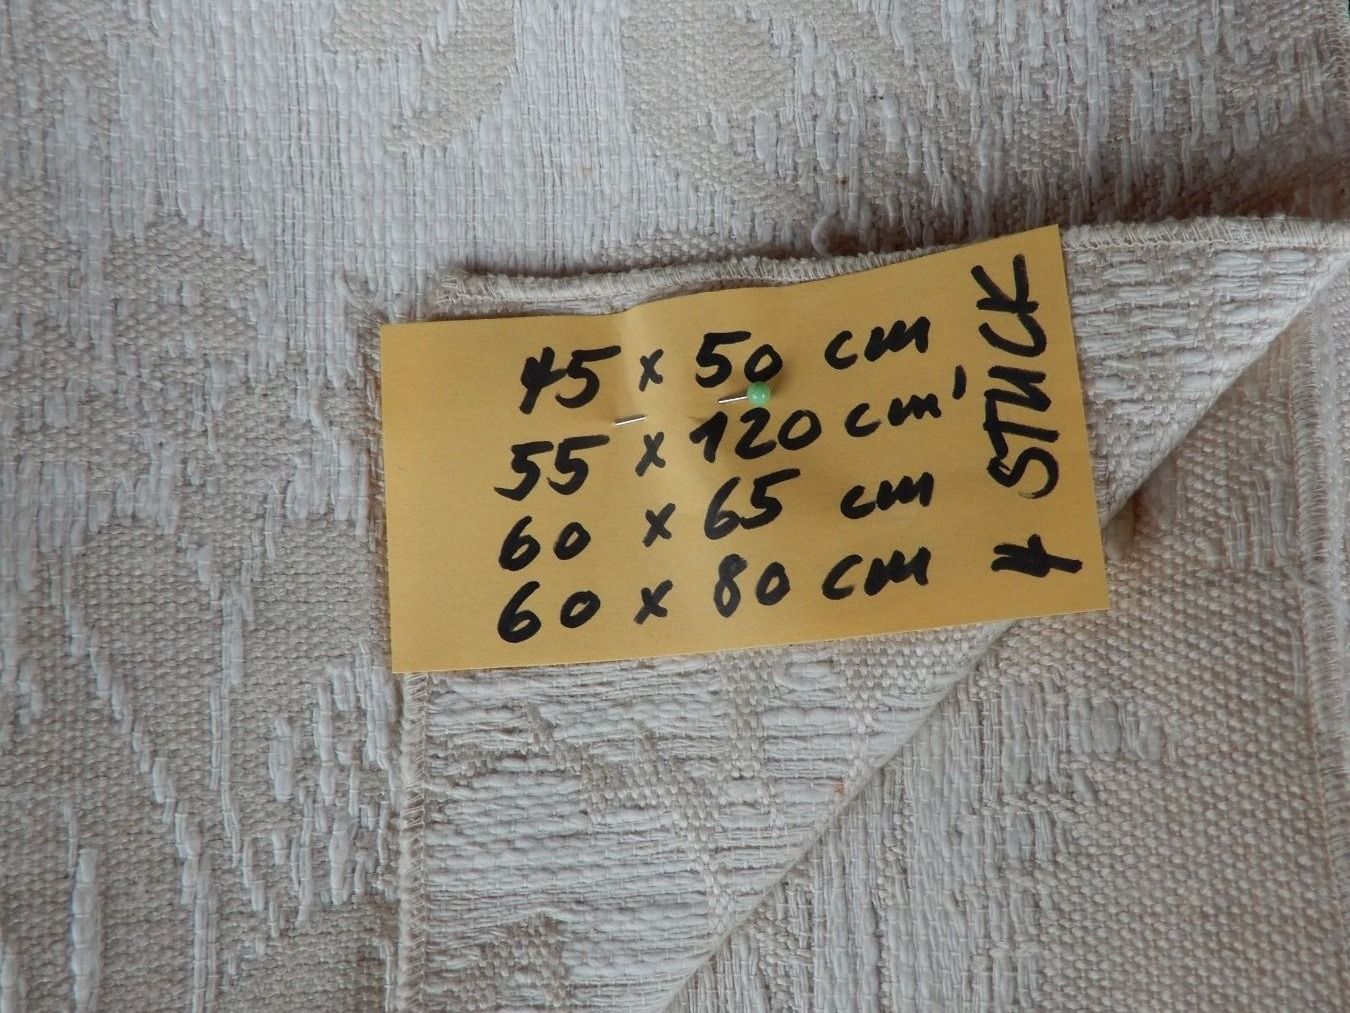 45 x 50 cm
55 x 120 cm'
60 x 65 cm
60 x 80 cm
4 STUCK